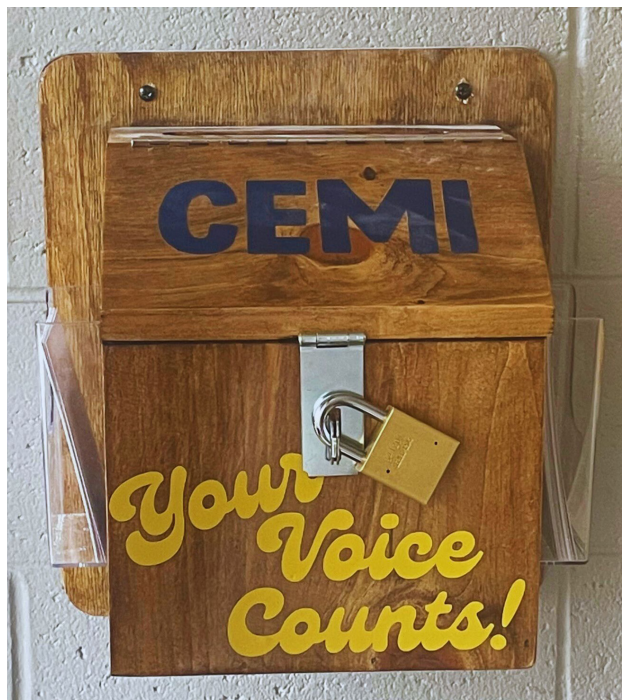 CEMI
Your
Voice
Counts!